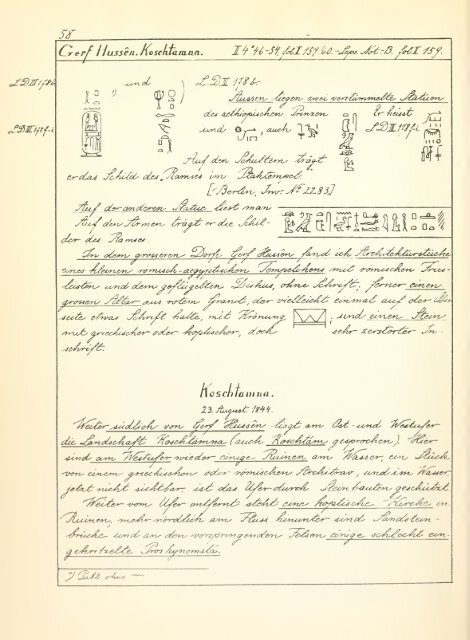 58
Gerf Hussên. Koschtamna. II 4° 46-54, fol. II 154/60.- Leps. Not.-B. fol. II 159.
L.D. III 178 b. und L.D. III 178 b.
Aussen liegen zwei verstümmelte Statuen
des aethiopischen Prinzen Er heisst
L.D. III und , auch L.D. III
Auf den Schultern trägt
er das Schild des Ramses im Ptahtempel.
[Berlin, Inv. № 2283]
Auf der anderen Statue liest man
Auf den Armen trägt er die Schil-
der des Ramses
In dem grösseren Dorfe Gerf Hussên fand ich Architekturstücke
eines kleinen römisch-aegyptischen Tempelchens mit römischen Fries-
leisten und dem geflügelten Diskus, ohne Schrift; ferner einen
grossen Altar aus rotem Granit, der vielleicht einmal auf der
seite etwas Schrift hatte, mit Krönung ; und einen Stein
mit griechischer oder koptischer, doch sehr zerstörter In-
schrift.
Koschtamna.
23. August 1844.
Weiter südlich von Gerf Hussên liegt am Ost- und Westufer
die Landschaft Koschtamna (auch Koschtam gesprochen). Hier
sind am Westufer wieder einige Ruinen am Wasser, ein Stück
von einem griechischen oder römischen Architrav, und im Wasser,
jetzt nicht sichtbar, ist das Ufer durch Steinbauten geschützt.
Weiter vom Ufer entfernt steht eine koptische Kirche in
Ruinen, mehr nördlich am Fluss hinunter sind Sandstein-
brüche und an den vorspringenden Felsen einige schlecht ein-
gekritzelte Proskynemata.
1) Publ. ohne